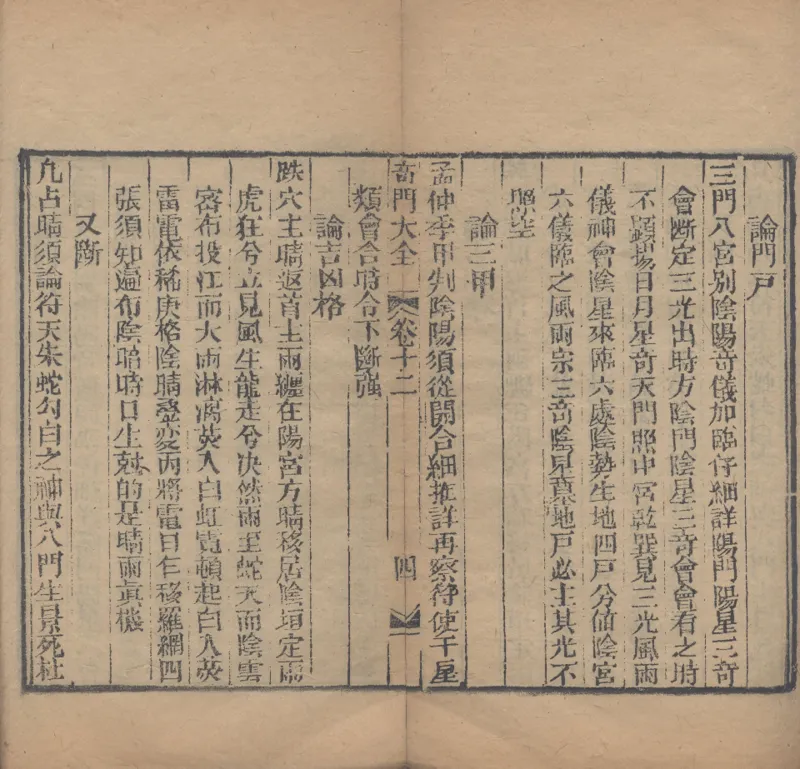 論門戶
三門八宮別陰陽竒儀加臨仔細詳陽門陽星三竒
會斷定三光出時方陰門陰星三竒會會看之時
不顯揚日月星竒天門照中宮乾巽見三光風雨
儀神會陰星來臨六處陰勢生地四戶分値陰宮
六儀臨之風雨宗三竒陰星墓地戶必主其光不
照空
論三甲
孟仲季甲判陰陽須從開合細推詳再察符使干星
竒門大全 卷十二 四
類會合時令下斷强
論吉凶格
跌穴主晴返首主雨纏在陽宮方晴移居陰垣定雨
虎狂兮立見風生龍走兮决然雨至蛇夭而陰雲
密布投江而大雨淋漓熒入白虹霓頓起白入熒
雷電依稀庚格陰晴變丙將電日乍移羅網四
張須知遍布陰暗時日生尅的是晴雨眞機
又斷
凢占晴須論符天朱蛇勾白之神與八門生景死杜